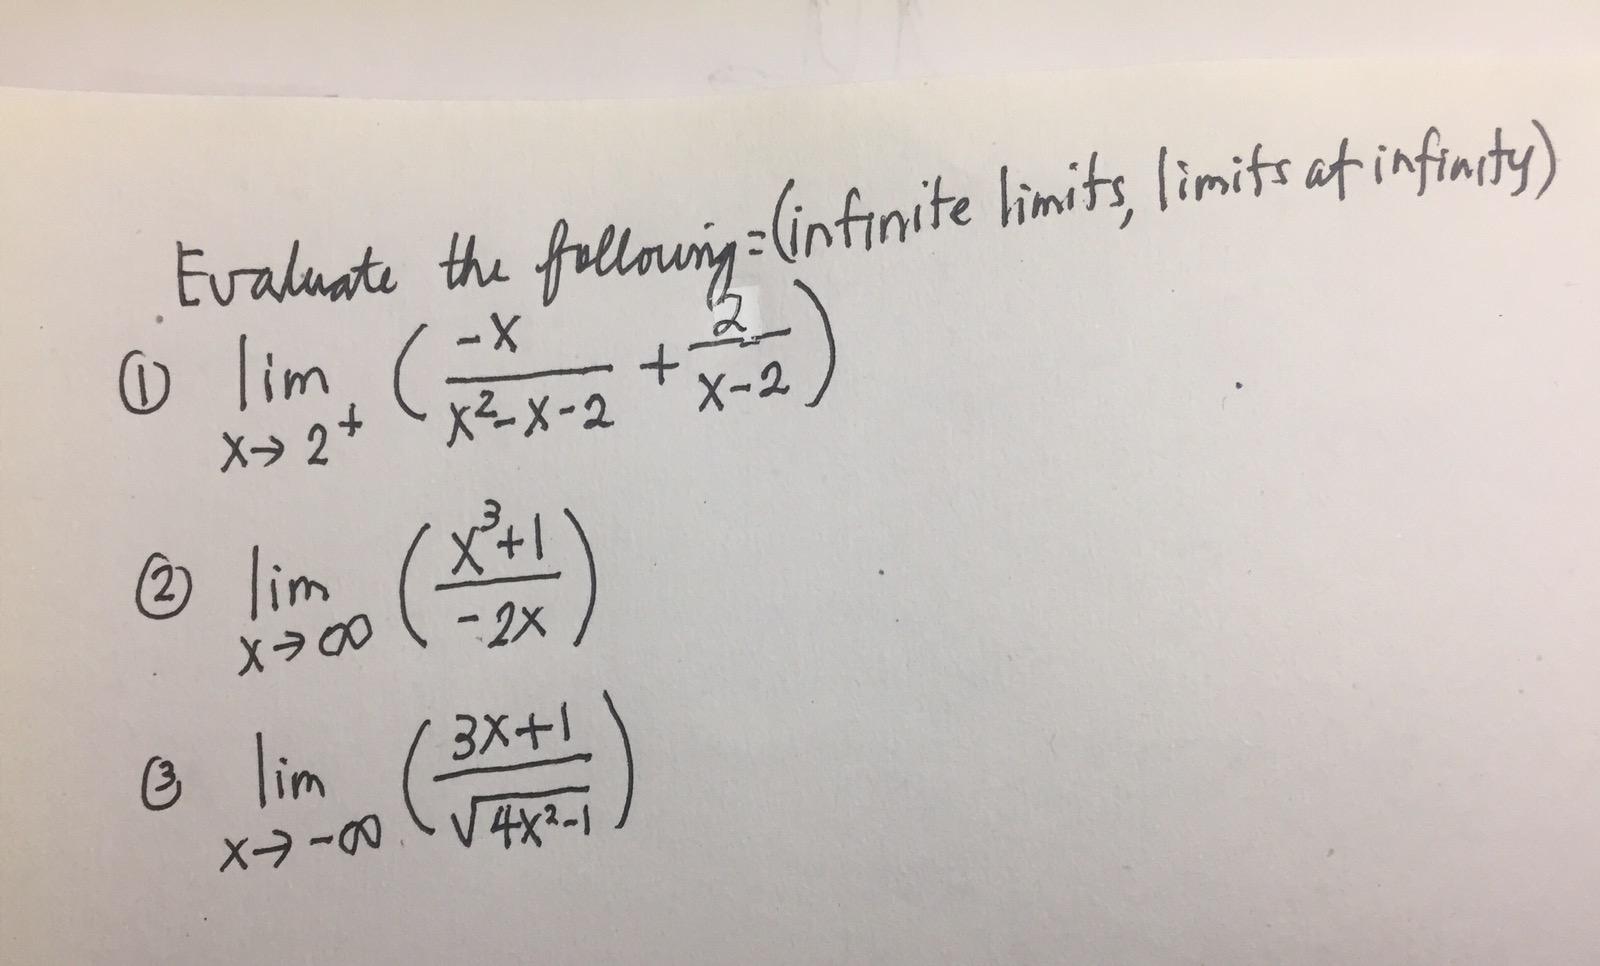 Evaluate the following: (infinite limits, limits at infinity)
① lim x→2⁺ (-x/(x²-x-2) + 2/(x-2))
② lim x→∞ ((x³+1)/(-2x))
③ lim x→-∞ ((3x+1)/√(4x²-1))